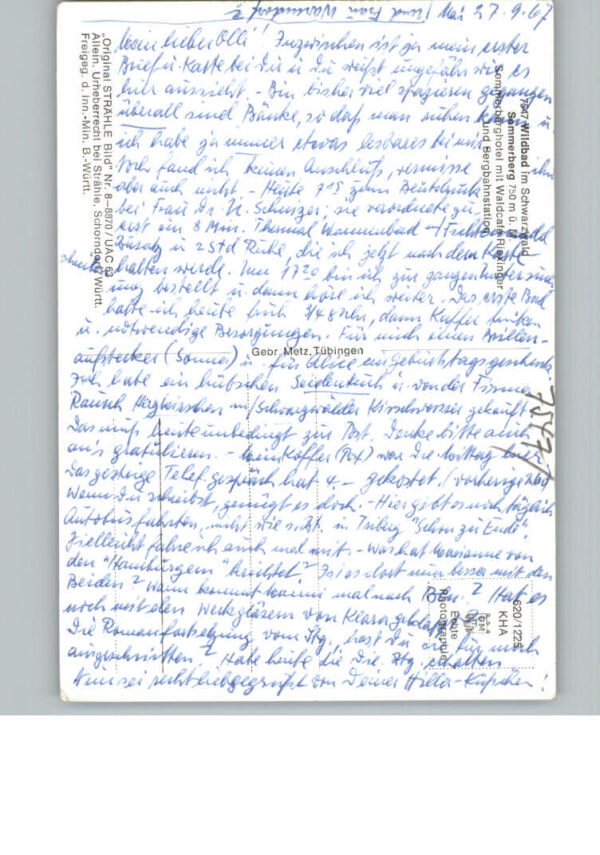 und Frau Warendorf? Mi 27.9.67
Mein lieber Olli! Inzwischen ist ja mein erster
Brief u. Karte bei Dir u. Du weißt ungefähr wie es
hier aussieht. - Bin bisher viel spazieren gegangen
überall sind Bänke, so daß man ruhen kann u.
ich habe ja immer etwas lesbares bei mir.
Noch fand ich keinen Anschluß, vermisse ihn
aber auch nicht. - Heute 7¹⁵ zum
bei Frau Dr. H. : sie verordnete zu-
erst ein 8 Min. Thermal Wannenbad
Zusatz u. 2 Std Ruhe, die ich jetzt nach dem
halten werde. Um 17²⁰ bin ich zur
ung bestellt u. dann höre ich weiter. Das erste Bad
hatte ich heute früh 3/4 8 Uhr, dann Kaffee trinken
u. notwendige Besorgungen. Für mich einen Brillen-
aufstecker (Sonne) u. für ein Geburtstagsgeschenk.
Ich habe ein hübsches Seidentuch u. von der Firma
Rausch m/Schwarzwälder Kirschwasser gekauft.
Das muß heute unbedingt zur Post. Denke bitte auch
an's gratulieren. - Mein Koffer (Pox) war Die Mittag hier.
Das gestrige Telef. gespräch hat 4.- gekostet,
Wenn Du schreibst, genügt es doch. - Hier gibt es noch täglich
Autobusfahrten, nicht wie z. Zt. in Triberg "Schon zu Ende".
Vielleicht fahre ich auch mal mit. - Was hat Marianne von
den "Hamburgern" berichtet? Ist es dort nun besser mit den
Beiden? Wann kommt mal nach Bln.? Hat es
noch mit den Weckgläsern von Klara geklappt?
Die Romanfortsetzung vom Stg. hast Du für mich
ausgeschnitten? Habe heute die Die. Ztg. erhalten
Nun sei recht lieb gegrüßt von Deiner Hilla-
7547 Wildbad im Schwarzwald
Sommerberg 750 m ü. M.
Sommerberghotel mit Waldcafe Riexinger
und Bergbahnstation
„Original STRÄHLE Bild" Nr. 8-8870 / UAC 63
Allein. Urheberrecht bei Strähle, Schorndorf/Württ.
Freigeg. d. Inn.-Min. B.-Württ.
Gebr. Metz, Tübingen
620/1225
KHA
Echte
Photographie